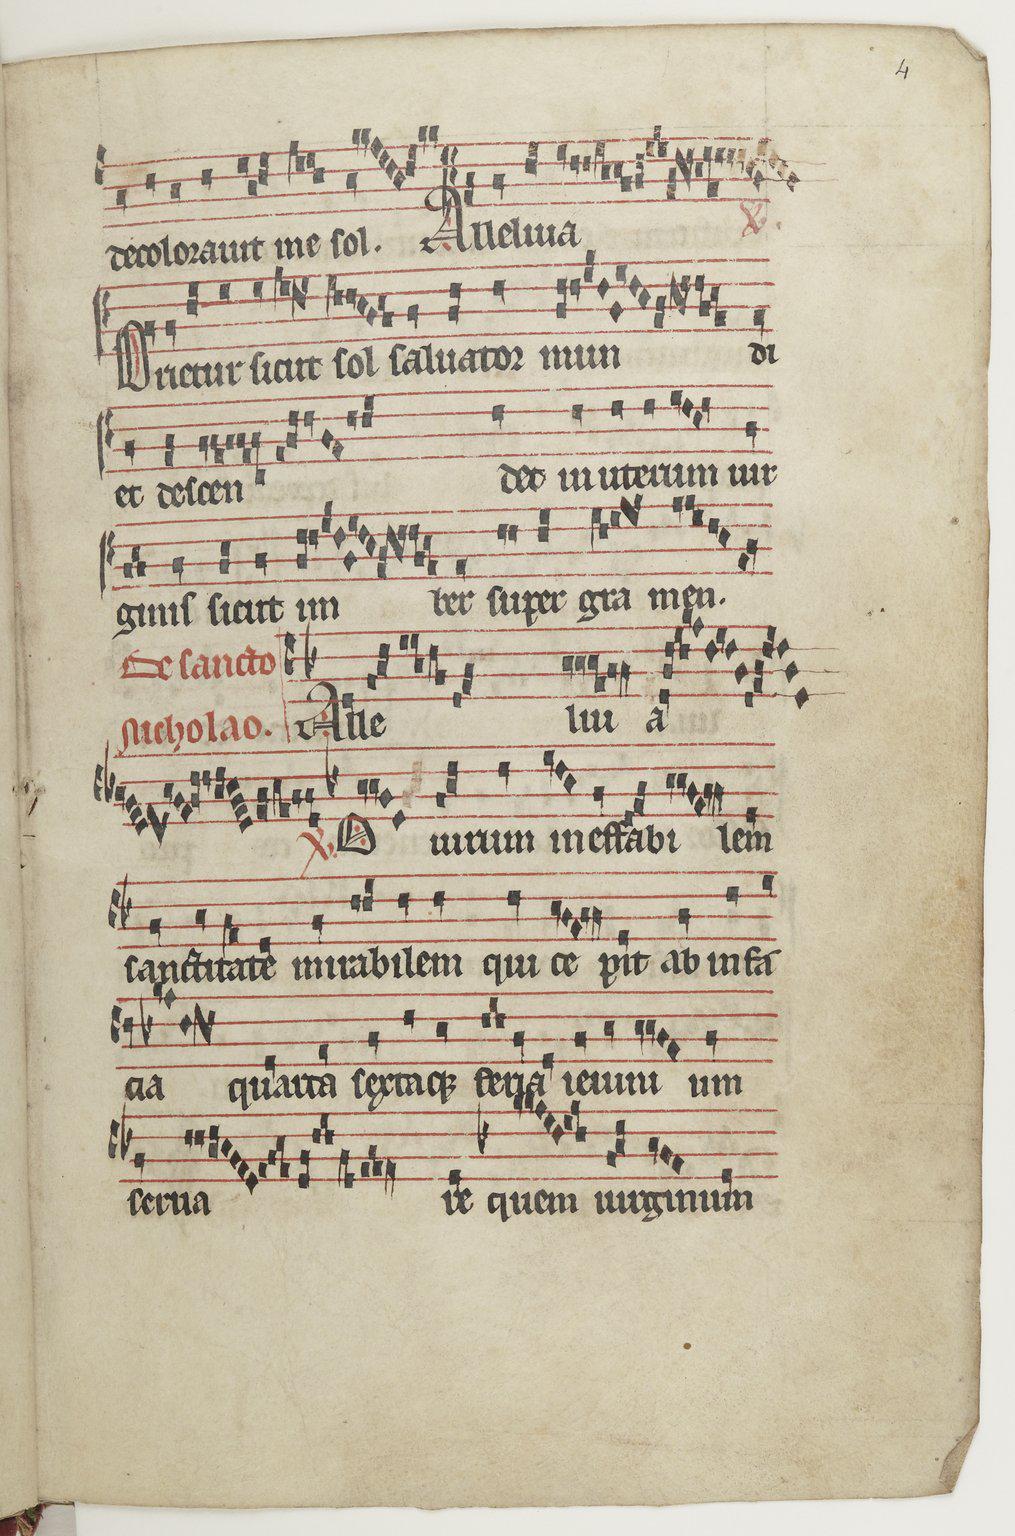 4
decolorauit me sol. Alleluia ℣.
Orietur sicut sol saluator mun di
et descen det in uterum uir
ginis sicut im ber super gra men.
De sancto
Nicholao. Alle lui a
℣. O uirum ineffabi lem
sanctitate mirabilem qui ce pit ab infā
cia quarta sextaqꝫ feria ieiuni um
serua re quem uirginum